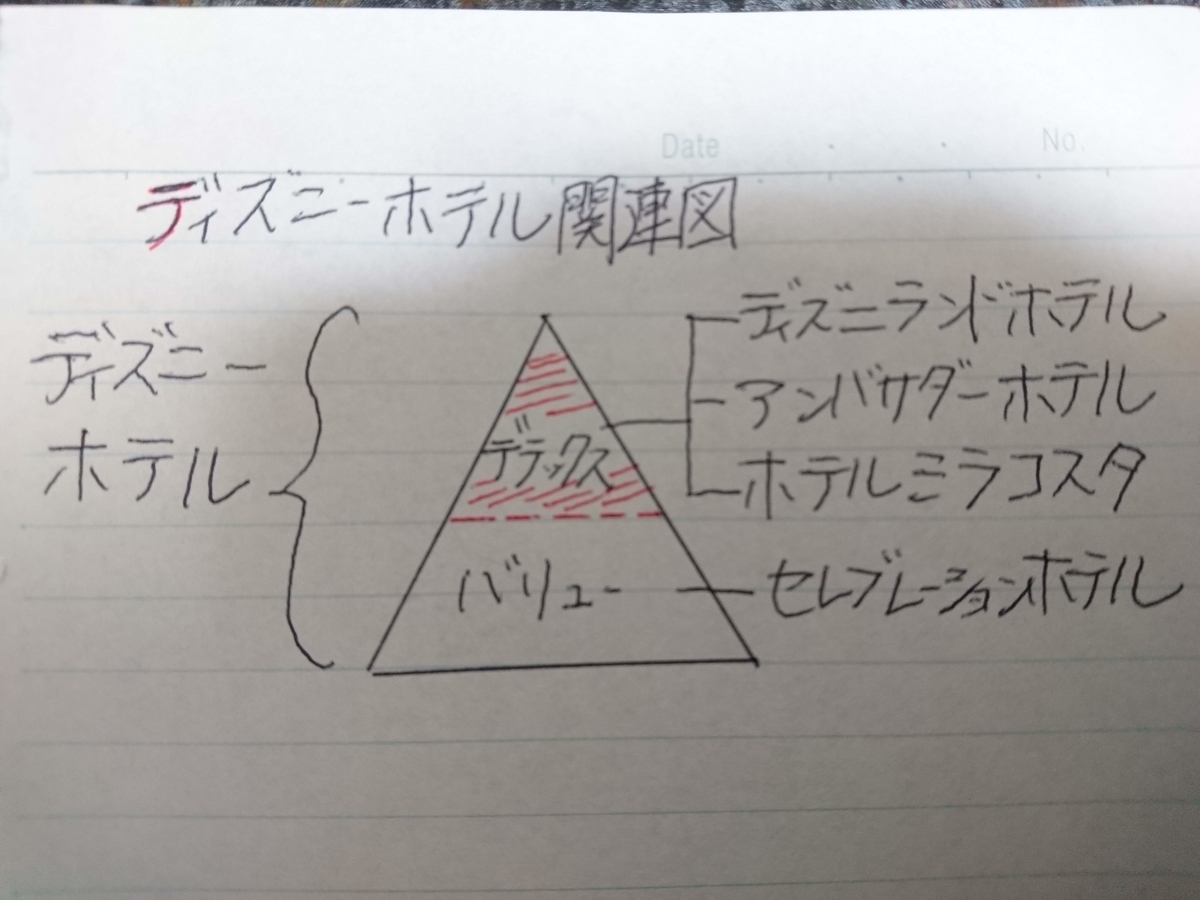 Date
No.
ディズニーホテル関連図
ディズニー
ホテル
デラックス
バリュー
ディズニランドホテル
アンバサダーホテル
ホテルミラコスタ
セレブレーションホテル